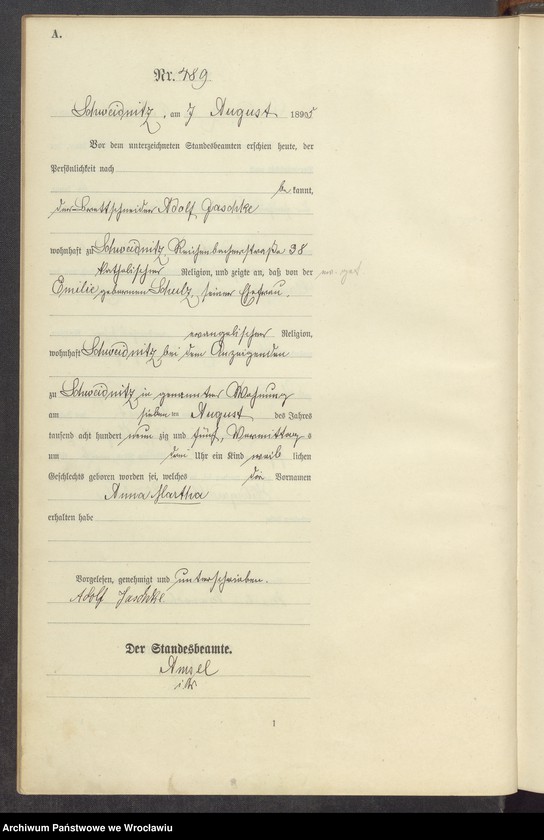 A.
Nr. 489
Schweidnitz, am 7 August 1895
Vor dem unterzeichneten Standesbeamten erschien heute, der
Persönlichkeit nach
be kannt,
der Brettschneider Adolf Jaschke
wohnhaft zu Schweidnitz Reichenbacherstraße 38
katholischer Religion, und zeigte an, daß von der
Emilie geborenen Schulz, seiner Ehefrau,
evangelischer Religion,
wohnhaft Schweidnitz bei dem Anzeigenden
zu Schweidnitz in genannter Wohnung
am sieben ten August des Jahres
tausend acht hundert neun zig und fünf, Vormittag s
um drei Uhr ein Kind weib lichen
Geschlechts geboren worden sei, welches die Vornamen
Anna Martha
erhalten habe
Vorgelesen, genehmigt und unterschrieben.
Adolf Jaschke
Der Standesbeamte.
Amsel
1
Archiwum Państwowe we Wrocławiu